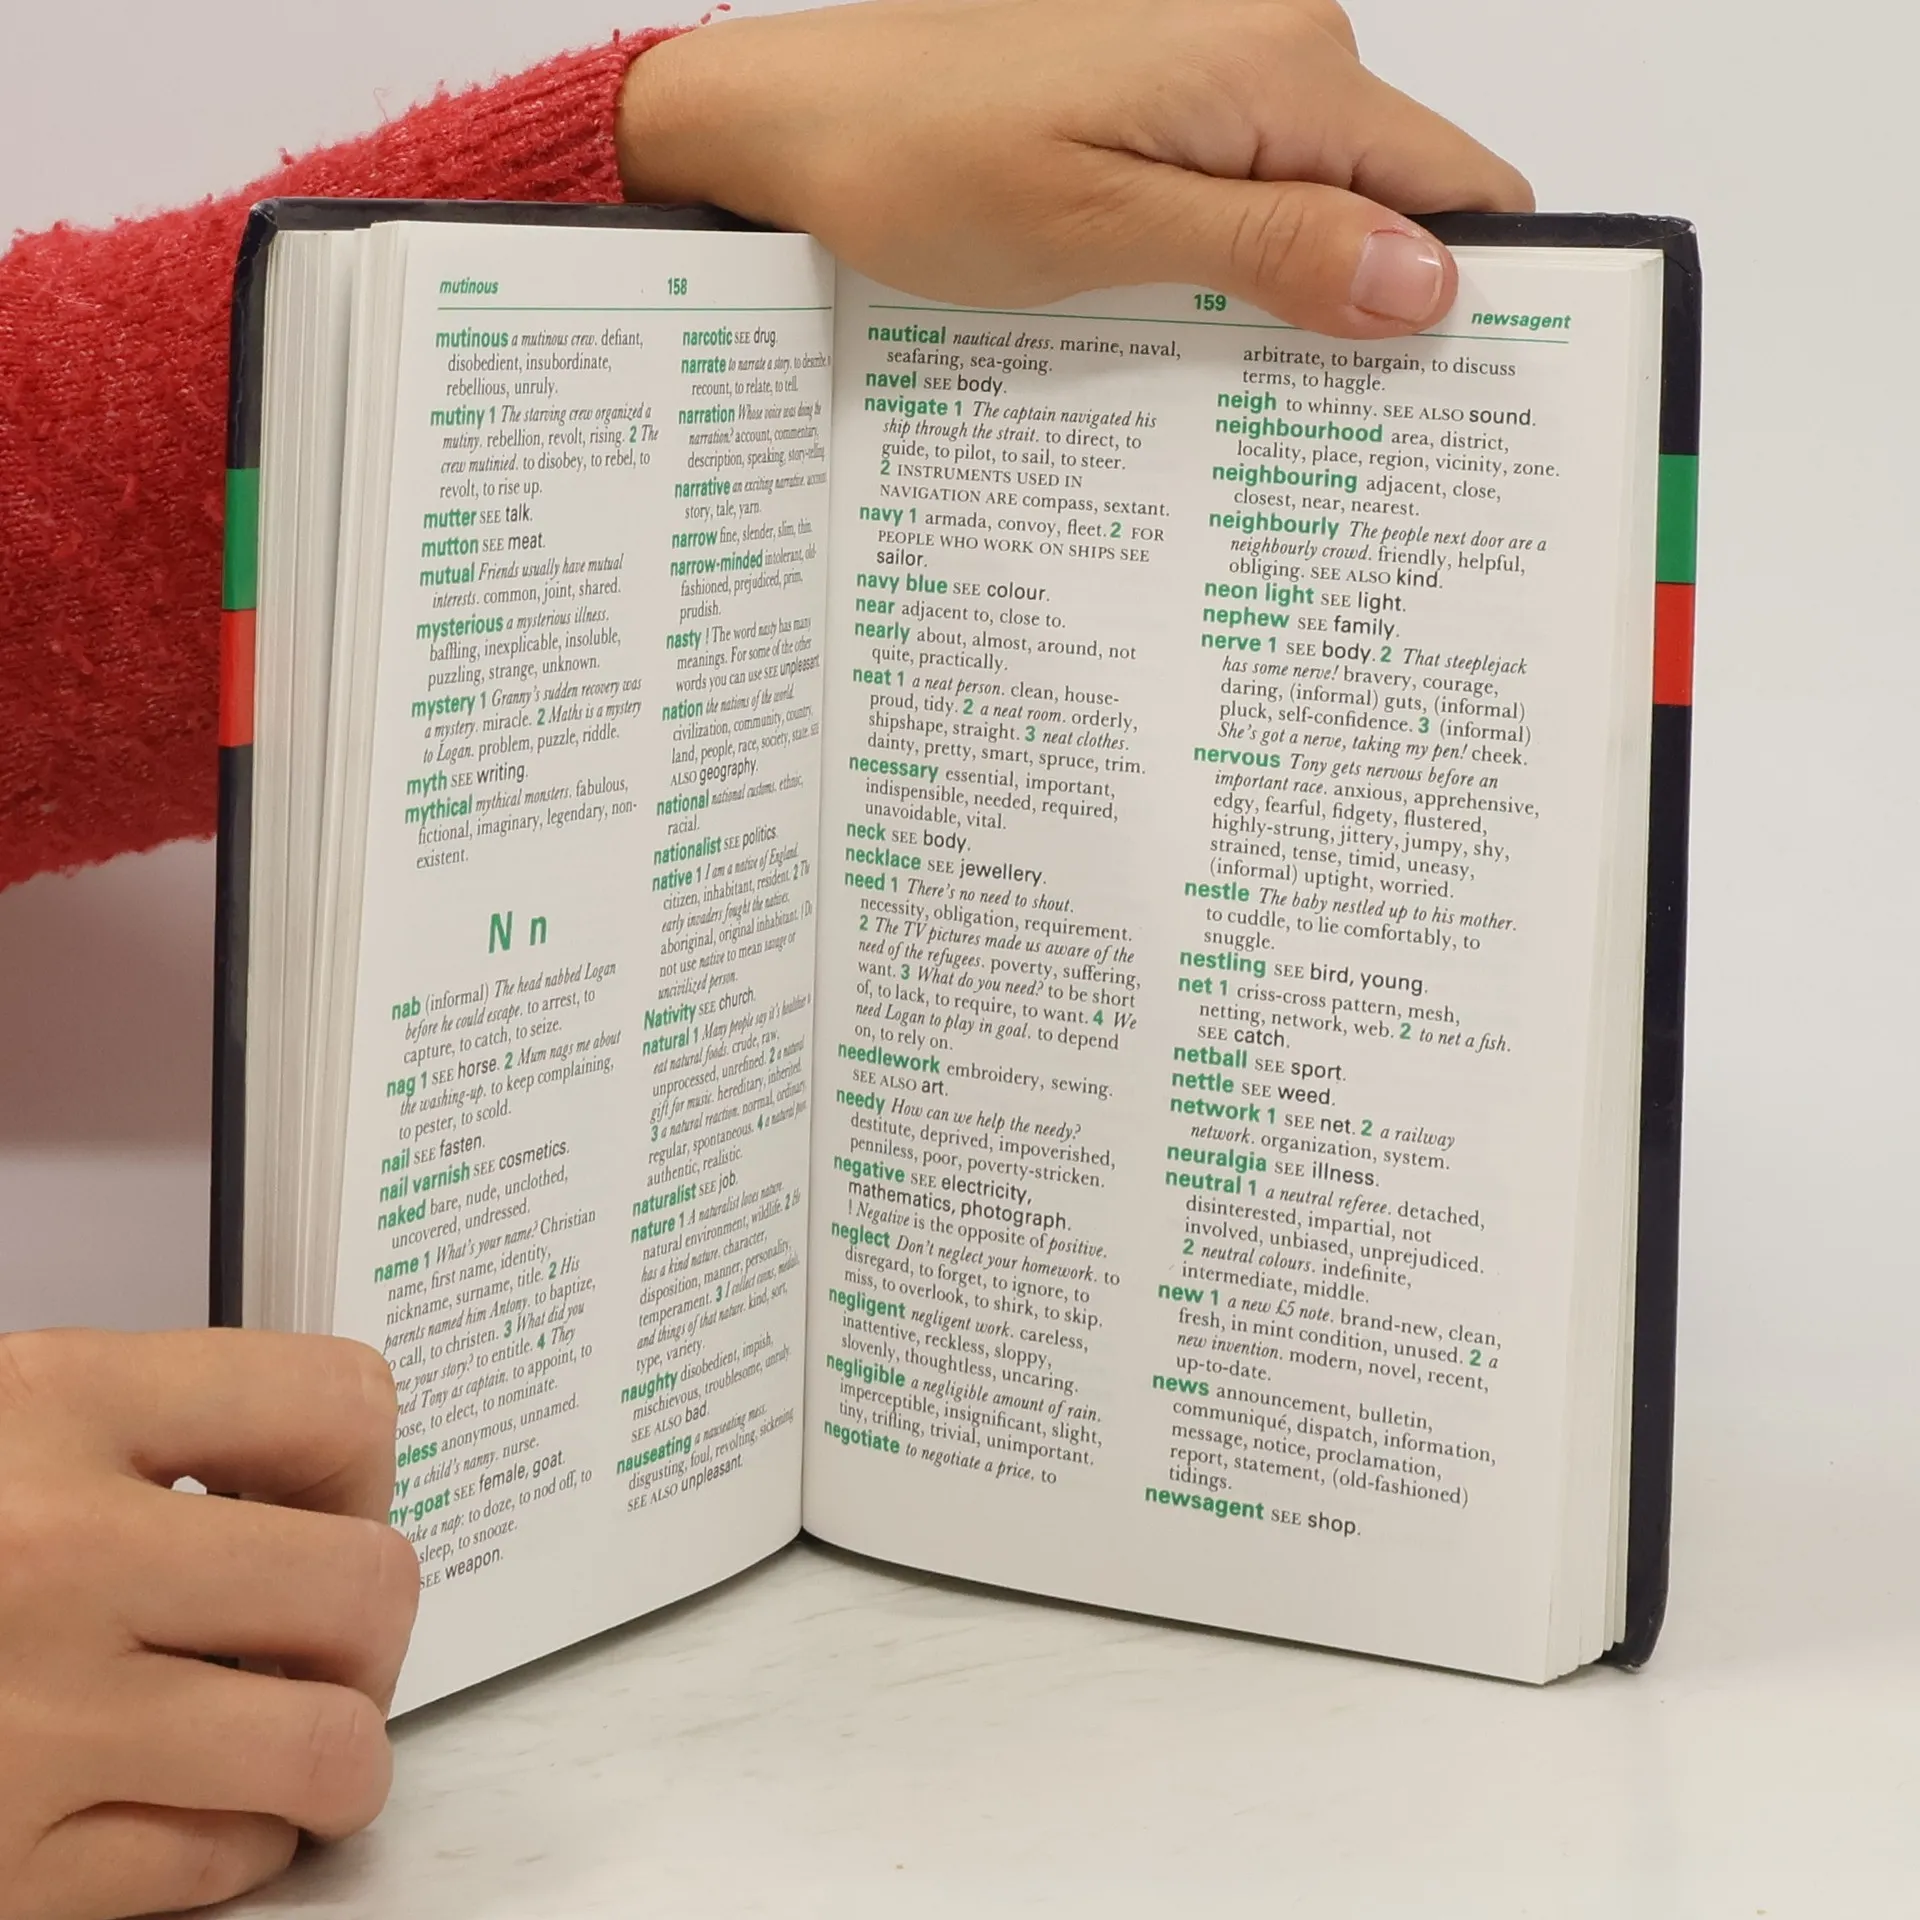 mutinous
158
mutinous a mutinous crew. defiant,
disobedient, insubordinate,
rebellious, unruly.
mutiny 1 The starving crew organized a
mutiny. rebellion, revolt, rising. 2 The
crew mutinied. to disobey, to rebel, to
revolt, to rise up.
mutter SEE talk.
mutton SEE meat.
mutual Friends usually have mutual
interests. common, joint, shared.
mysterious a mysterious illness.
baffling, inexplicable, insoluble,
puzzling, strange, unknown.
mystery 1 Granny's sudden recovery was
a mystery. miracle. 2 Maths is a mystery
to Logan. problem, puzzle, riddle.
myth SEE writing.
mythical mythical monsters. fabulous,
fictional, imaginary, legendary, non-
existent.
N n
nab (informal) The head nabbed Logan
before he could escape. to arrest, to
capture, to catch, to seize.
nag 1 SEE horse. 2 Mum nags me about
the washing-up. to keep complaining,
to pester, to scold.
nail SEE fasten.
nail varnish SEE cosmetics.
naked bare, nude, unclothed,
uncovered, undressed.
name 1 What's your name? Christian
name, first name, identity,
nickname, surname, title. 2 His
parents named him Antony. to baptize,
o call, to christen. 3 What did you
me your story? to entitle. 4 They
ned Tony as captain. to appoint, to
ose, to elect, to nominate.
eless anonymous, unnamed.
ny a child's nanny. nurse.
ny-goat SEE female, goat.
take a nap: to doze, to nod off, to
sleep, to snooze.
SEE weapon.
narcotic SEE drug.
narrate to narrate a story. to describe, to
recount, to relate, to tell.
narration Whose voice was doing the
narration? account, commentary,
description, speaking, story-telling
narrative an exciting narrative. account
story, tale, yarn.
narrow fine, slender, slim, thin.
narrow-minded intolerant, old-
fashioned, prejudiced, prim,
prudish.
nasty ! The word nasty has many
meanings. For some of the other
words you can use SEE unpleasant
nation the nations of the world.
civilization, community, country,
land, people, race, society, state. SEE
ALSO geography.
national national customs. ethnic,
racial.
nationalist SEE politics.
native 1 I am a native of England.
citizen, inhabitant, resident. 2 The
early invaders fought the natives.
aboriginal, original inhabitant. ! Do
not use native to mean savage or
uncivilized person.
Nativity SEE church.
natural 1 Many people say it's healthier to
eat natural foods. crude, raw,
unprocessed, unrefined. 2 a natural
gift for music. hereditary, inherited.
3 a natural reaction. normal, ordinary,
regular, spontaneous. 4 a natural
authentic, realistic.
naturalist SEE job.
nature 1 A naturalist loves nature.
natural environment, wildlife. 2 He
has a kind nature. character,
disposition, manner, personality,
temperament. 3 I collect coins, medals,
and things of that nature. kind, sort,
type, variety.
naughty disobedient, impish,
mischievous, troublesome, unruly.
SEE ALSO bad.
nauseating a nauseating mess.
disgusting, foul, revolting, sickening
SEE ALSO unpleasant.
159
newsagent
nautical nautical dress. marine, naval,
seafaring, sea-going.
navel SEE body.
navigate 1 The captain navigated his
ship through the strait. to direct, to
guide, to pilot, to sail, to steer.
2 INSTRUMENTS USED IN
NAVIGATION ARE compass, sextant.
navy 1 armada, convoy, fleet. 2 FOR
PEOPLE WHO WORK ON SHIPS SEE
sailor.
navy blue SEE colour.
near adjacent to, close to.
nearly about, almost, around, not
quite, practically.
neat 1 a neat person. clean, house-
proud, tidy. 2 a neat room. orderly,
shipshape, straight. 3 neat clothes.
dainty, pretty, smart, spruce, trim.
necessary essential, important,
indispensible, needed, required,
unavoidable, vital.
neck SEE body.
necklace SEE jewellery.
need 1 There's no need to shout.
necessity, obligation, requirement.
2 The TV pictures made us aware of the
need of the refugees. poverty, suffering,
want. 3 What do you need? to be short
of, to lack, to require, to want. 4 We
need Logan to play in goal. to depend
on, to rely on.
needlework embroidery, sewing.
SEE ALSO art.
needy How can we help the needy?
destitute, deprived, impoverished,
penniless, poor, poverty-stricken.
negative SEE electricity,
mathematics, photograph.
! Negative is the opposite of positive.
neglect Don't neglect your homework. to
disregard, to forget, to ignore, to
miss, to overlook, to shirk, to skip.
negligent negligent work. careless,
inattentive, reckless, sloppy,
slovenly, thoughtless, uncaring.
negligible a negligible amount of rain.
imperceptible, insignificant, slight,
tiny, trifling, trivial, unimportant.
negotiate to negotiate a price. to
arbitrate, to bargain, to discuss
terms, to haggle.
neigh to whinny. SEE ALSO sound.
neighbourhood area, district,
locality, place, region, vicinity, zone.
neighbouring adjacent, close,
closest, near, nearest.
neighbourly The people next door are a
neighbourly crowd. friendly, helpful,
obliging. SEE ALSO kind.
neon light SEE light.
nephew SEE family.
nerve 1 SEE body. 2 That steeplejack
has some nerve! bravery, courage,
daring, (informal) guts, (informal)
pluck, self-confidence. 3 (informal)
She's got a nerve, taking my pen! cheek.
nervous Tony gets nervous before an
important race. anxious, apprehensive,
edgy, fearful, fidgety, flustered,
highly-strung, jittery, jumpy, shy,
strained, tense, timid, uneasy,
(informal) uptight, worried.
nestle The baby nestled up to his mother.
to cuddle, to lie comfortably, to
snuggle.
nestling SEE bird, young.
net 1 criss-cross pattern, mesh,
netting, network, web. 2 to net a fish.
SEE catch.
netball SEE sport.
nettle SEE weed.
network 1 SEE net. 2 a railway
network. organization, system.
neuralgia SEE illness.
neutral 1 a neutral referee. detached,
disinterested, impartial, not
involved, unbiased, unprejudiced.
2 neutral colours. indefinite,
intermediate, middle.
new 1 a new £5 note. brand-new, clean,
fresh, in mint condition, unused. 2 a
new invention. modern, novel, recent,
up-to-date.
news announcement, bulletin,
communiqué, dispatch, information,
message, notice, proclamation,
report, statement, (old-fashioned)
tidings.
newsagent SEE shop.